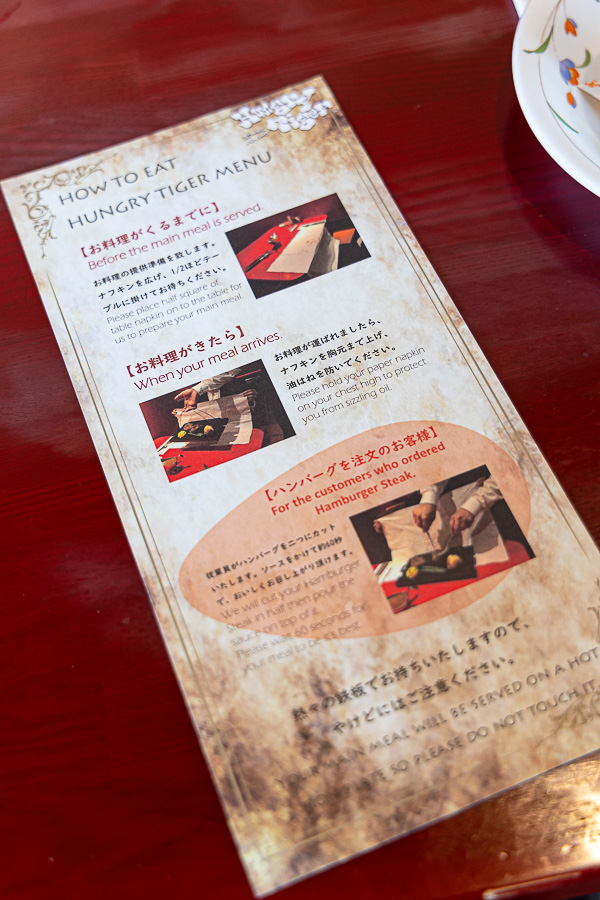 HOW TO EAT
HUNGRY TIGER MENU
【お料理がくるまでに】
Before the main meal is served.
お料理の提供準備を致します。
ナフキンを広げ、1/2ほどテー
ブルに掛けてお待ちください。
Please place half square of
table napkin on the table for
us to prepare your main meal.
【お料理がきたら】
When your meal arrives.
お料理が運ばれましたら、
ナフキンを胸元まで上げ、
油はねを防いでください。
Please hold your paper napkin
on your chest high to protect
you from sizzling oil.
【ハンバーグを注文のお客様】
For the customers who ordered
Hamburger Steak.
従業員がハンバーグを二つにカット
いたします。ソースをかけて約60秒
で、おいしくお召し上がり頂けます。
We will cut your Hamburger
Steak in half then pour the
sauce on top of it.
Please wait 60 seconds for
your meal to be it's best.
熱々の鉄板でお持ちいたしますので、
やけどにはご注意ください。
YOUR MAIN MEAL WILL BE SERVED ON A HOT
PLATE SO PLEASE DO NOT TOUCH IT.